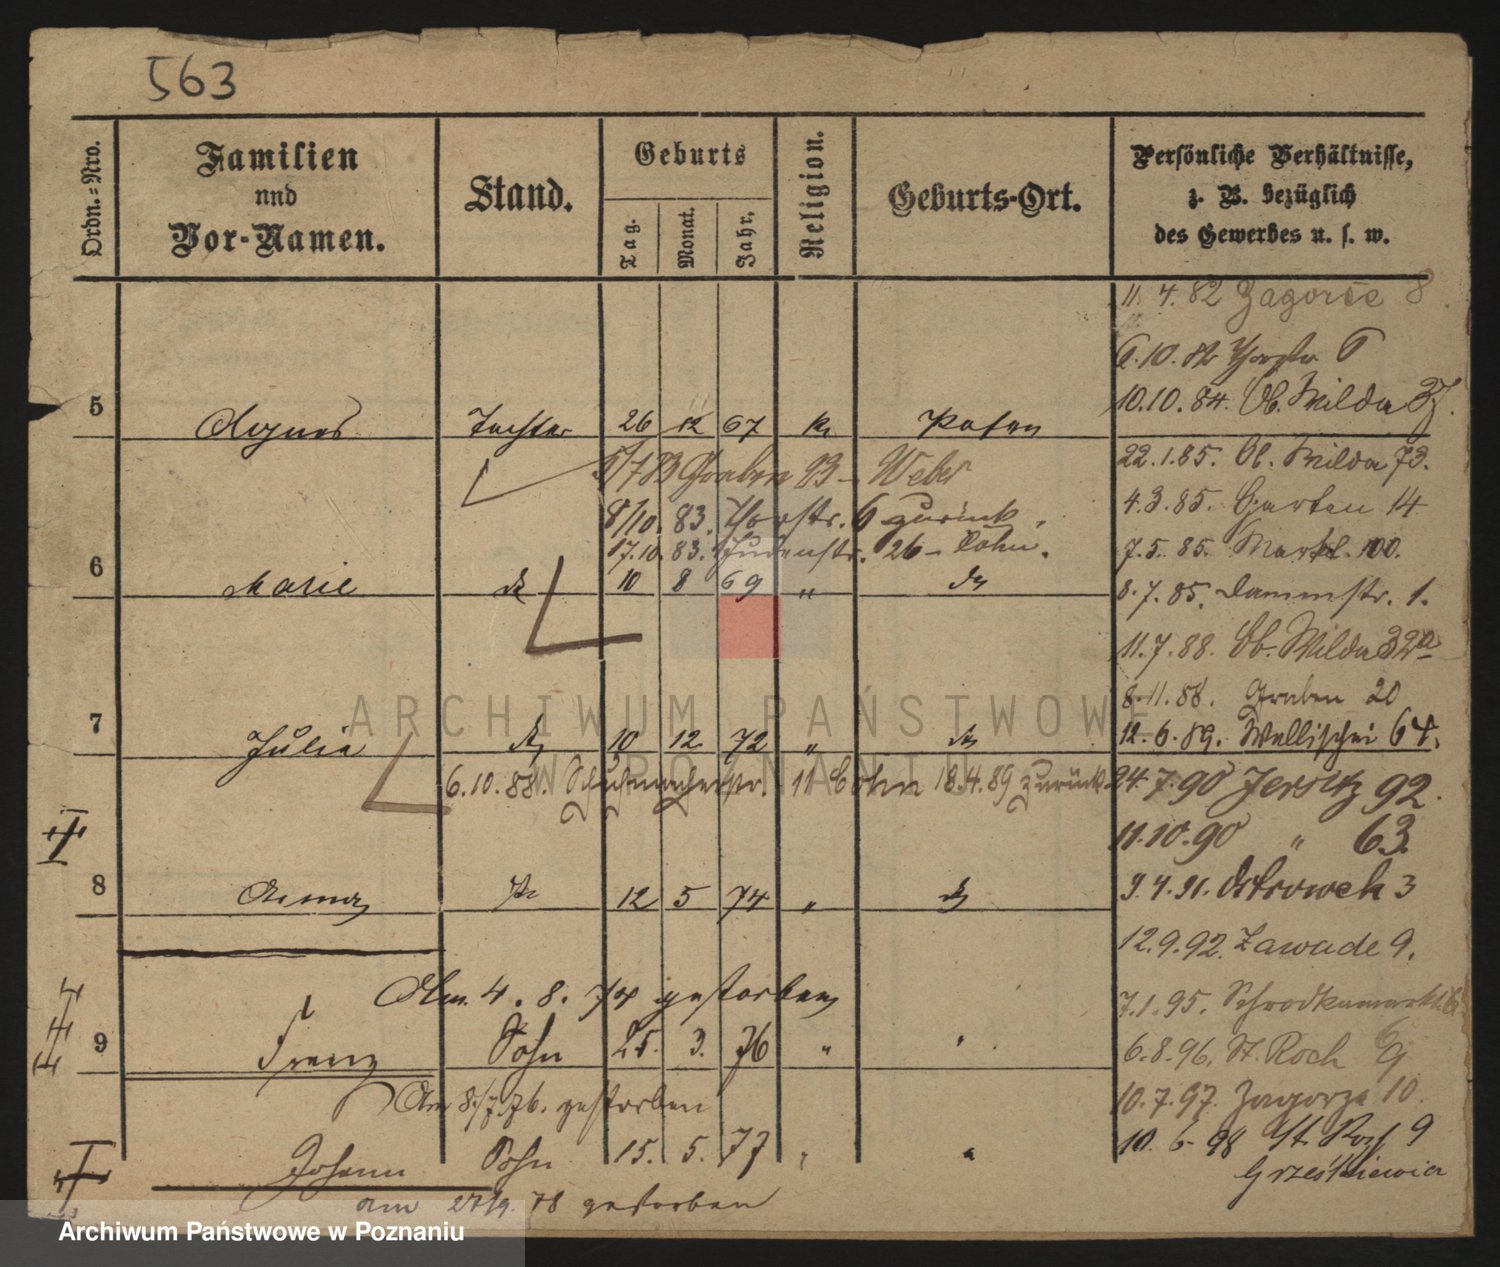 563
Ordn.=Nro.
Familien
und
Vor-Namen.
Stand.
Geburts
Tag.
Monat.
Jahr.
Religion.
Geburts-Ort.
Persönliche Verhältnisse,
z. B. bezüglich
des Gewerbes u. s. w.
11. 4. 82 Zagorze 8
6.10.82 6
10.10.84. Ob. Wilda 37.
5 Agnes Tochter 26 12 67 k. Posen
Graben 13 - Weber
8/10. 83. Thorstr. 6 zurück.
17.10. 83. Judenstr. 26 - Sohn.
22.1.85. Ob. Wilda 73.
4.3.85. Garten 14
7.5.85. Markt. 100.
6 Marie do 10 8 69 " do
8.7.85. Dammstr. 1.
11.7.88. Ob. Wilda 32a
8.11.88. Graben 20
12.6.89. Wallischei 64.
7 Julie do 10 12 72 " do
6.10.88. Schuhmacherstr. 11 Cohn 18.4.89 zurück
24.7.90 Jersitz 92.
11.10.90 " 63.
8 Anna 12 5 74 " do
9.4.91. Ostrowek 3
12.9.92. Zawade 9.
Am 4. 8. 74 gestorben
7.1.95. Schrodkamarkt
9 Franz Sohn 25. 3. 76 " "
6.8.96. St. Roch 9
Am 8./7.76. gestorben
10.7.97. Zagorze 10.
10. 6. 98 St. Roch 9
Grześkiewicz
Johann Sohn 15. 5. 77 " "
am 27/9. 78 gestorben
ARCHIWUM PAŃSTWOW
W POZNANIU
Archiwum Państwowe w Poznaniu